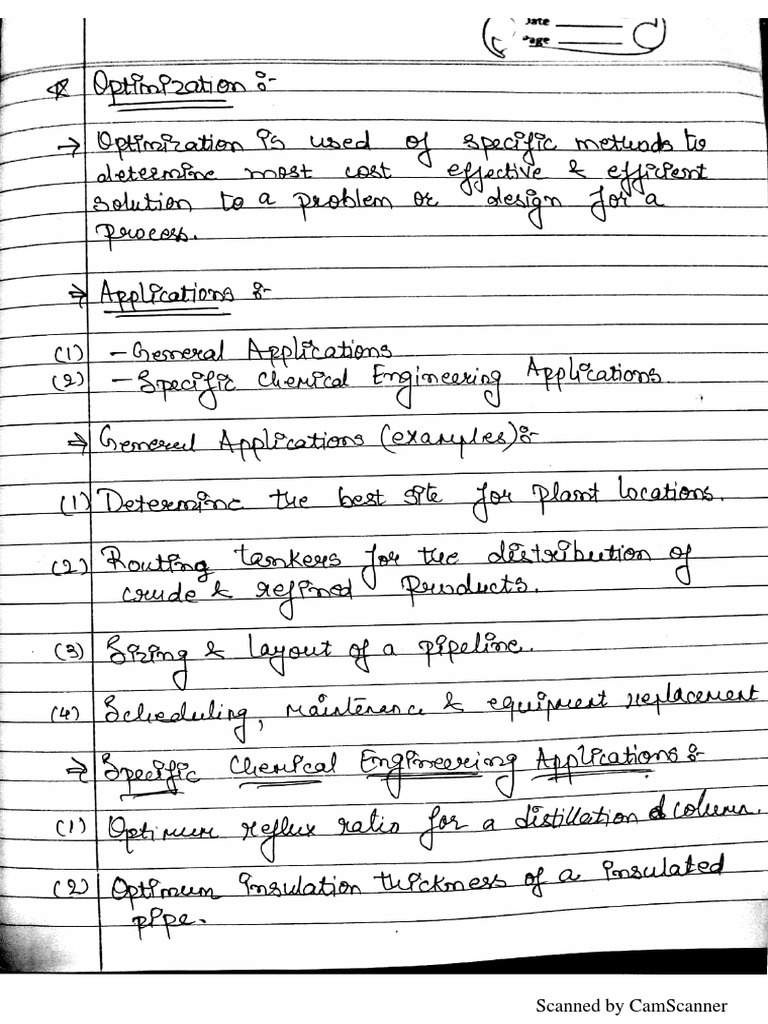 Date
Page
* Optimization :-
→ Optimization is used of specific methods to
determine most cost effective & efficient
solution to a problem or design for a
process.
⇒ Applications :-
(1) - General Applications
(2) - Specific Chemical Engineering Applications.
⇒ General Applications (examples) :-
(1) Determine the best site for plant locations.
(2) Routing tankers for the distribution of
crude & refined products.
(3) Sizing & layout of a pipeline.
(4) Scheduling, maintenance & equipment replacement
⇒ Specific Chemical Engineering Applications :-
(1) Optimum reflux ratio for a distillation column.
(2) Optimum insulation thickness of a insulated
pipe.
Scanned by CamScanner